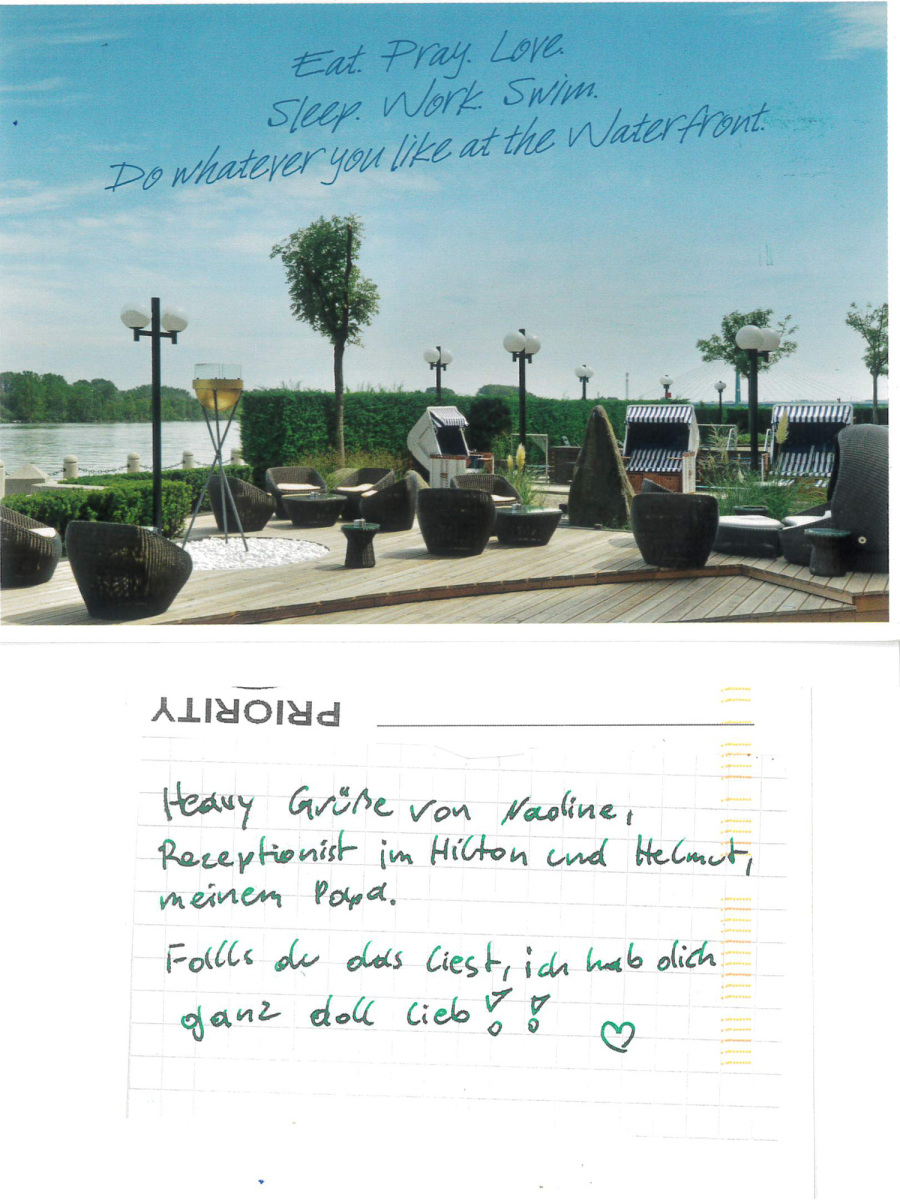 Eat. Pray. Love.
Sleep. Work. Swim.
Do whatever you like at the Waterfront.
PRIORITY
Heavy Grüße von Nadine,
Rezeptionist im Hilton und Helmut,
meinem Papa.
Falls du das liest, ich hab dich
ganz doll lieb!! ♡